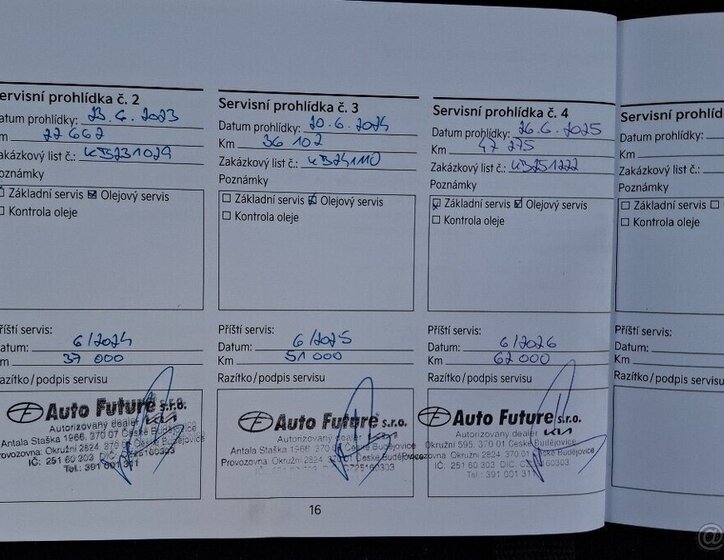 ervisní prohlídka č. 2
Datum prohlídky: 23. 6. 2023
Km 22 662
Zakázkový list č.: KB231029
Poznámky
Základní servis ☒ Olejový servis
☐ Kontrola oleje
Příští servis:
Datum: 6/2024
Km 37 000
Razítko/podpis servisu
Auto Future s.r.o.
Autorizovaný dealer KIA
Antala Staška 1966, 370 07 České Budějovice
Provozovna: Okružní 2824, 370 01 České Budějovice
IČ: 251 60 303 DIČ: CZ25160303
Tel.: 391 001 311
Servisní prohlídka č. 3
Datum prohlídky: 20. 6. 2024
Km 36 102
Zakázkový list č.: KB241110
Poznámky
☐ Základní servis ☒ Olejový servis
☐ Kontrola oleje
Příští servis:
Datum: 6/2025
Km 51 000
Razítko/podpis servisu
Auto Future s.r.o.
Autorizovaný dealer
Antala Staška 1966, 370 07 České Budějovice
Provozovna: Okružní 2824, 370 01 České Budějovice
IČ: 251 60 303 DIČ: CZ25160303
16
Servisní prohlídka č. 4
Datum prohlídky: 26. 6. 2025
Km 47 275
Zakázkový list č.: KB251222
Poznámky
☒ Základní servis ☒ Olejový servis
☐ Kontrola oleje
Příští servis:
Datum: 6/2026
Km 62 000
Razítko/podpis servisu
Auto Future s.r.o.
Autorizovaný dealer KIA
Okružní 595, 370 01 České Budějovice
Provozovna: Okružní 2824, 370 01 České Budějovice
IČ: 251 60 303 DIČ: CZ25160303
Tel.: 391 001 311
Servisní prohlíd
Datum prohlídky:
Km
Zakázkový list č.:
Poznámky
☐ Základní servis ☐
☐ Kontrola oleje
Příští servis:
Datum:
Km
Razítko/podpis se